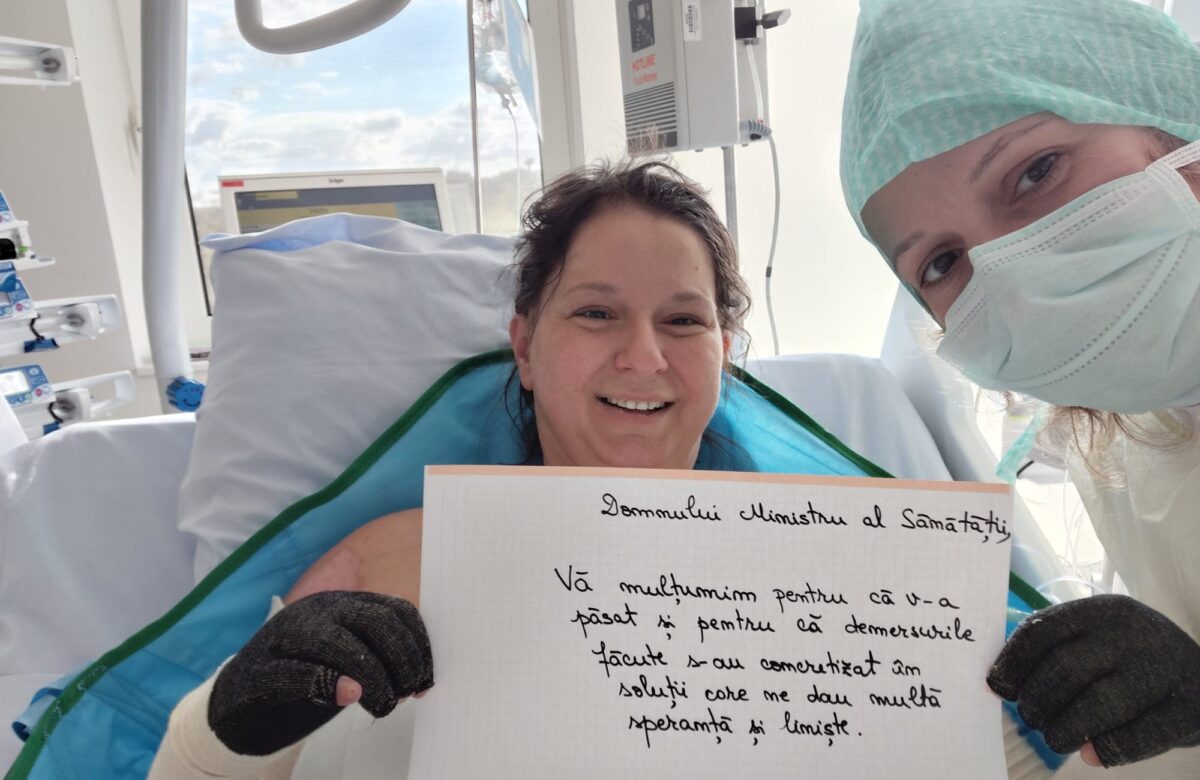 HOTLINE
Fluid Warmer
Dräger
Domnului Ministru al Sănătății,
Vă mulțumim pentru că v-a
păsat și pentru că demersurile
făcute s-au concretizat în
soluții care ne dau multă
speranță și liniște.